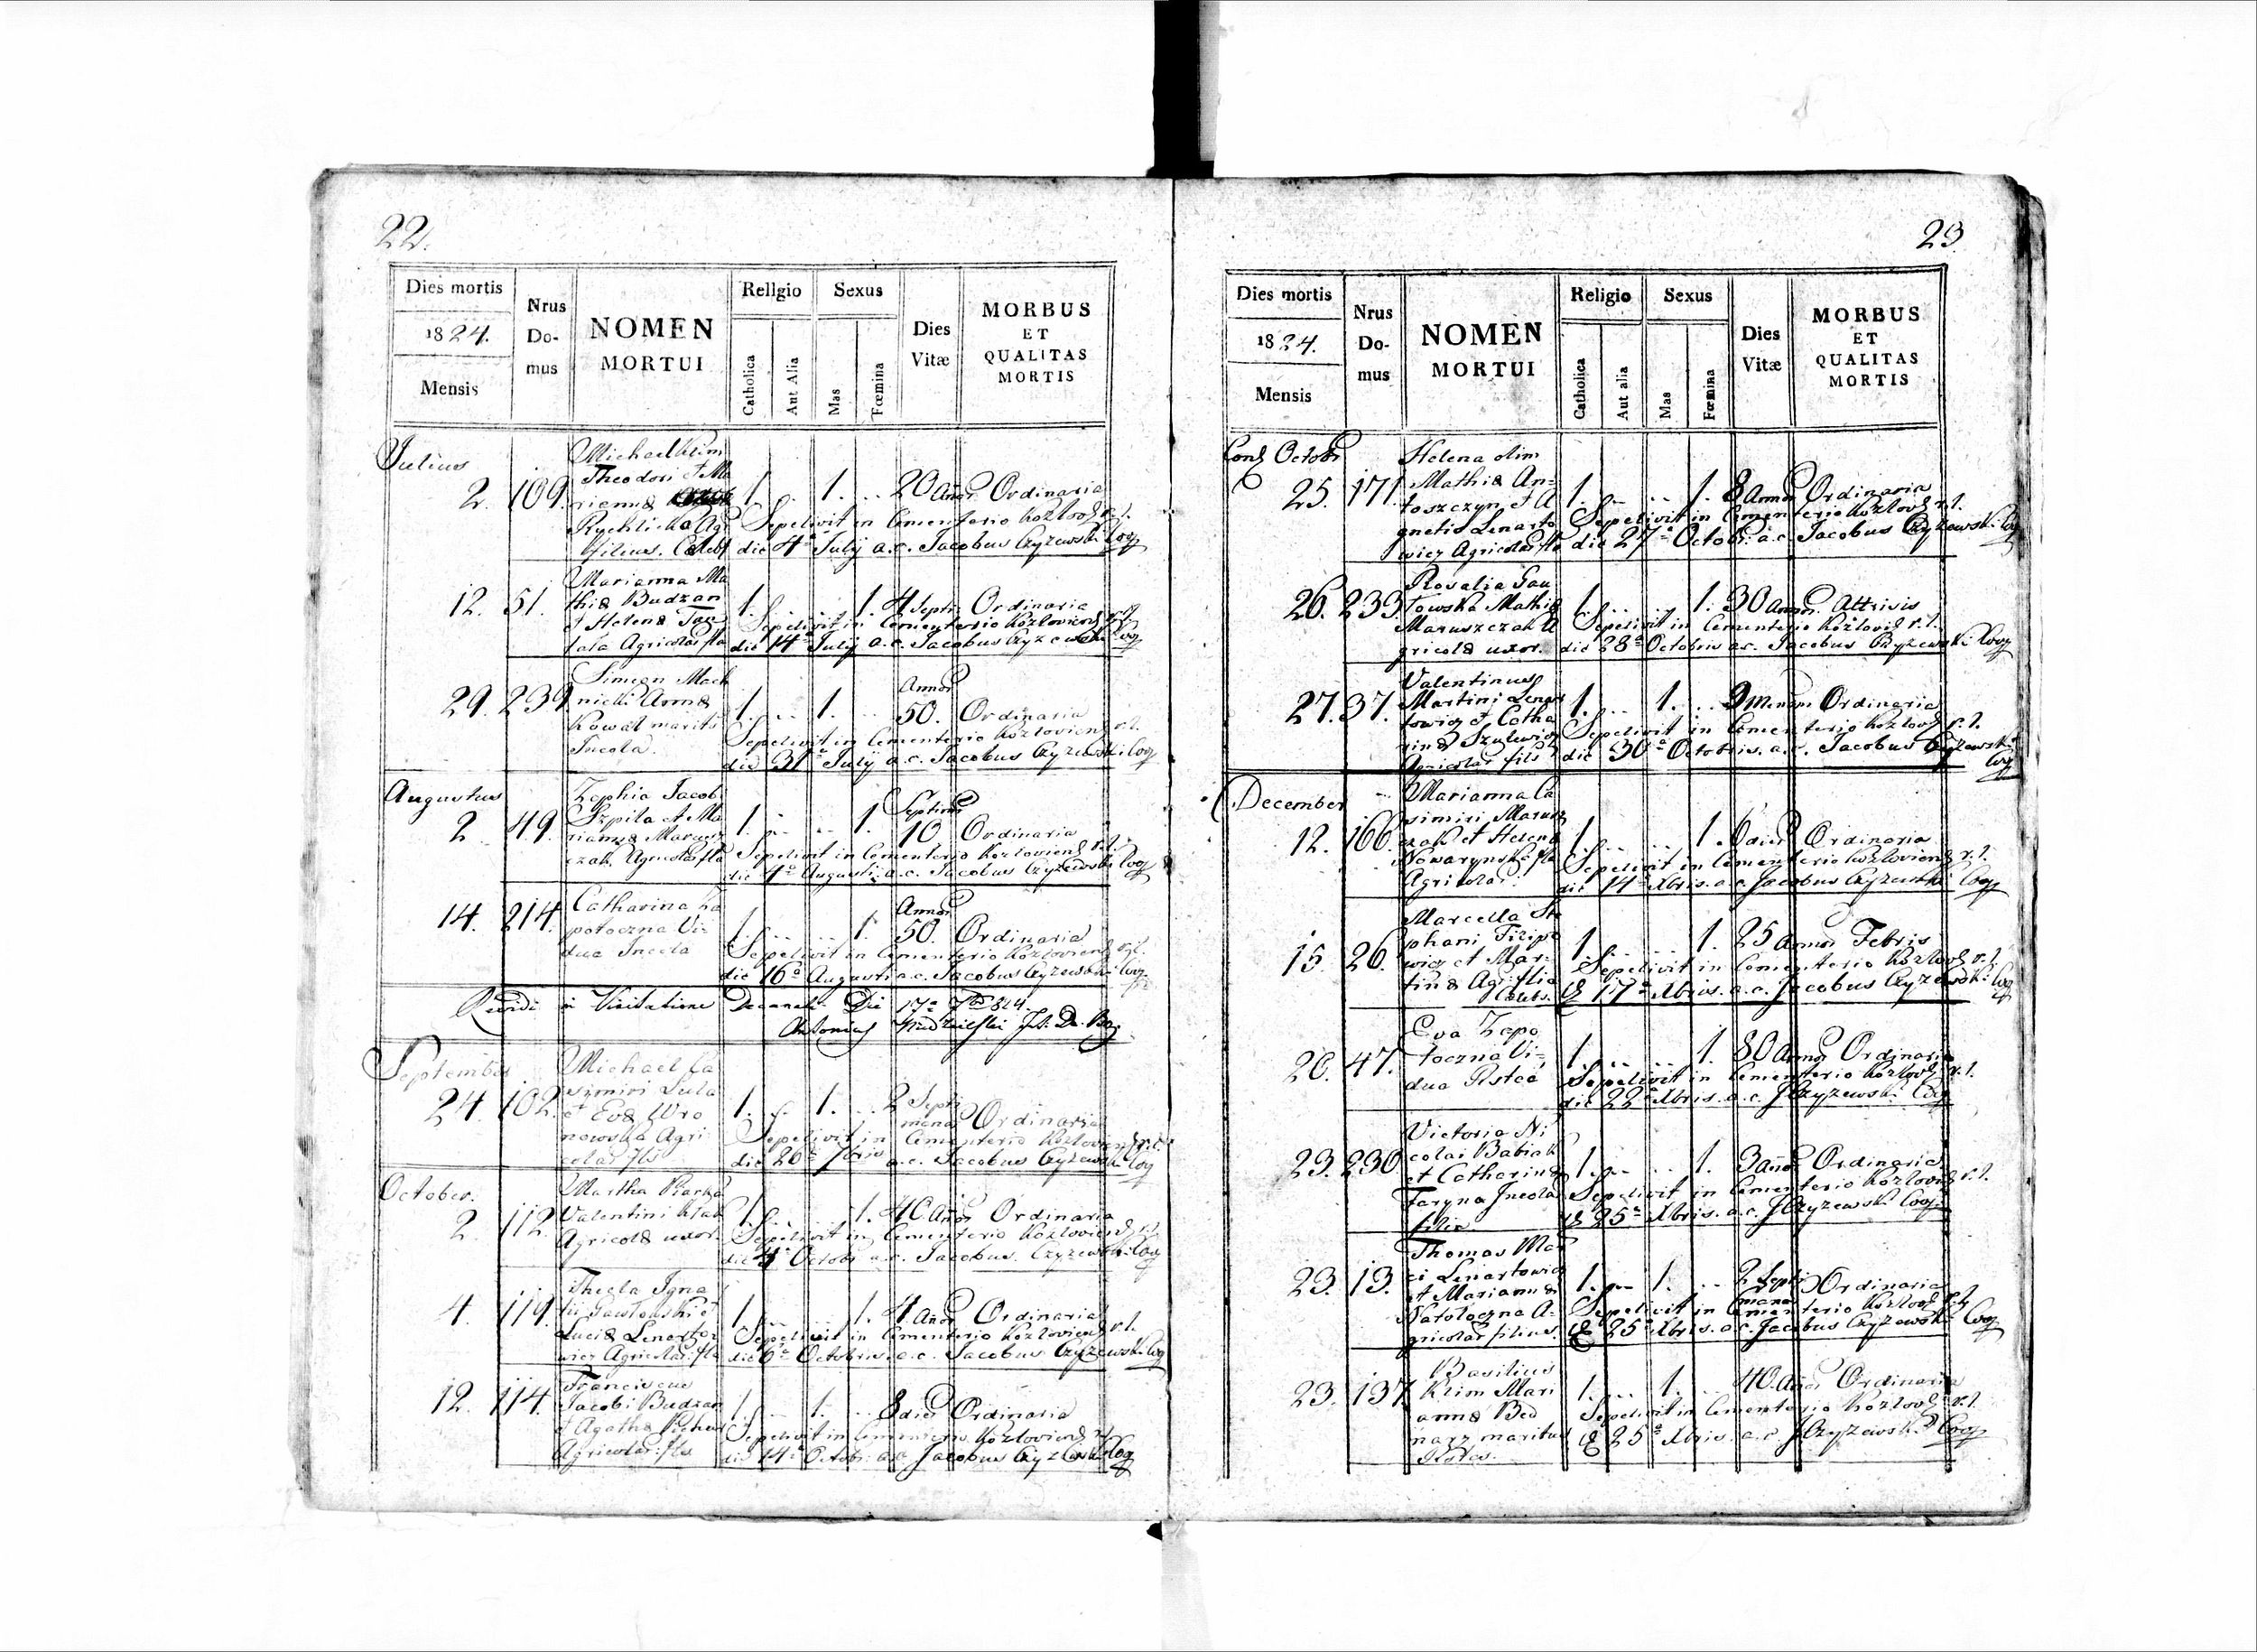 22.
Dies mortis
1824.
Mensis
Nrus
Do-
mus
NOMEN
MORTUI
Religio
Catholica
Aut Alia
Sexus
Mas
Fœmina
Dies
Vitæ
MORBUS
ET
QUALITAS
MORTIS
Julius
2. 109. Michael Klim
Theodori et Ma
rianna
Rychlicka Agr
filius. Caleb
1. 1. 20 Anor Ordinaria
Sepelivit in Cementerio Kozlov r.l.
die 4a July a.c. Jacobus Czyzewski Coop
12. 51. Marianna Ma
thia Budzan
et Helena
Agricolar fla
1. 1. 4 Septi Ordinaria
Sepelivit in Cementerio Kozloviens r.l.
die 14a July a.c. Jacobus Czyzewski Coop
29. 239. Simeon Mach
nicki Anna
Kowal marit
Incola.
1. 1. Annor
50. Ordinaria
Sepelivit in Cementerio Kozloviens r.l.
die 31a July a.c. Jacobus Czyzewski Coop
Augustus
2. 49. Zophia Jacob
Szpila et Ma
rianna Marusz
czak Agricolar fla
1. 1. Septim
10 Ordinaria
Sepelivit in Cementerio Kozloviens r.l.
die 4a Augusti a.c. Jacobus Czyzewski Coop
14. 214. Catharina Za
potoczna Vi-
dua Incola
1. 1. Annor
50. Ordinaria
Sepelivit in Cementerio Kozloviens r.l.
die 16a Augusti a.c. Jacobus Czyzewski Coop
in Visitatione Decanali Die 17a 7br 824
Antonius
September
24. 102. Michael Ca
simiri Lula
et Eva Wro
nowska Agri
colar fls
1. 1. 2 Septi
mana Ordinaria
Sepelivit in Cementerio Kozloviens r.l.
die 26a 7bris a.c. Jacobus Czyzewski Coop
October.
2. 112. Martha
Valentini
Agricola uxor.
1. 1. 40 Anor Ordinaria
Sepelivit in Cementerio Kozloviens r.l.
die 4a Octobr a.c. Jacobus Czyzewski Coop
4. 119. Thecla Igna
tii Gawlowski et
Lucia Lenarto
wicz Agricolar. fla
1. 1. 4 Anor Ordinaria
Sepelivit in Cementerio Kozloviens r.l.
die 6a Octobris a.c. Jacobus Czyzewski Coop
12. 114. Franciscus
Jacobi Budzan
et Agatha
Agricolar. fls
1. 1. 8 dier Ordinaria
Sepelivit in Cementerio Kozloviens r.l.
die 14a Octobr a.c. Jacobus Czyzewski Coop
23
Dies mortis
1824.
Mensis
Nrus
Do-
mus
NOMEN
MORTUI
Religio
Catholica
Aut alia
Sexus
Mas
Fœmina
Dies
Vitæ
MORBUS
ET
QUALITAS
MORTIS
Octobr
25. 171. Helena olim
Mathia An-
toszczyn et A
gnetis Lenarto
wicz Agricolar fla
1. 1. 8 Annor Ordinaria
Sepelivit in Cementerio Kozlov r.l.
die 27a Octobr. a.c. Jacobus Czyzewski Coop
26. 233. Rosalia Gau
Mathia
Maruszczak A
gricola uxor.
1. 1. 30 Annor. Attrisis
Sepelivit in Cementerio Kozlovi r.l.
die 28a Octobris a.c. Jacobus Czyzewski Coop
27. 37. Valentinus
Martini Lenar
towicz et Catha
rina Szulewicz
Agricolar fils
1. 1. 9 Mensum Ordinaria
Sepelivit in Cementerio Kozlov r.l.
die 30a Octobris. a.c. Jacobus Czyzewski
Coop
December
12. 166. Marianna Ca
simiri Marusz
czak et Helena
Nowarynska fla
Agricolar.
1. 1. 6 dier Ordinaria
Sepelivit in Cementerio Kozloviens r.l.
die 14a Xbris. a.c. Jacobus Czyzewski Coop
15. 26. Marcella Ste
phani Filipo
wicz et Mar-
tina Agr flia
Caleb.
1. 1. 25 Annor Febris
Sepelivit in Cementerio Kozlov r.l.
17a Xbris. a.c. Jacobus Czyzewski Coop
20. 47. Eva Zapo
toczna Vi-
dua
1. 1. 80 Annor Ordinaria
Sepelivit in Cementerio Kozlov r.l.
die 22a Xbris. a.c. J Czyzewski Coop
23. 230. Victoria Ni
colai Babiak
et Catharina
Faryna Incola
filia
1. 1. 3 Anor Ordinaria
Sepelivit in Cementerio Kozlov r.l.
25a Xbris. a.c. J Czyzewski Coop
23. 13. Thomas Mar
ci Lenartowicz
et Marianna
Natoloczna A-
gricolar filius.
1. 1. 2 Septi
mana Ordinaria
Sepelivit in Cementerio Kozlov r.l.
25a Xbris. a.c. Jacobus Czyzewski Coop
23. 137. Basilius
Klim Mari
anna Bed
narz maritus
1. 1. 40 Anor Ordinaria
Sepelivit in Cementerio Kozlov r.l.
25a Xbris. a.c. J Czyzewski Coop